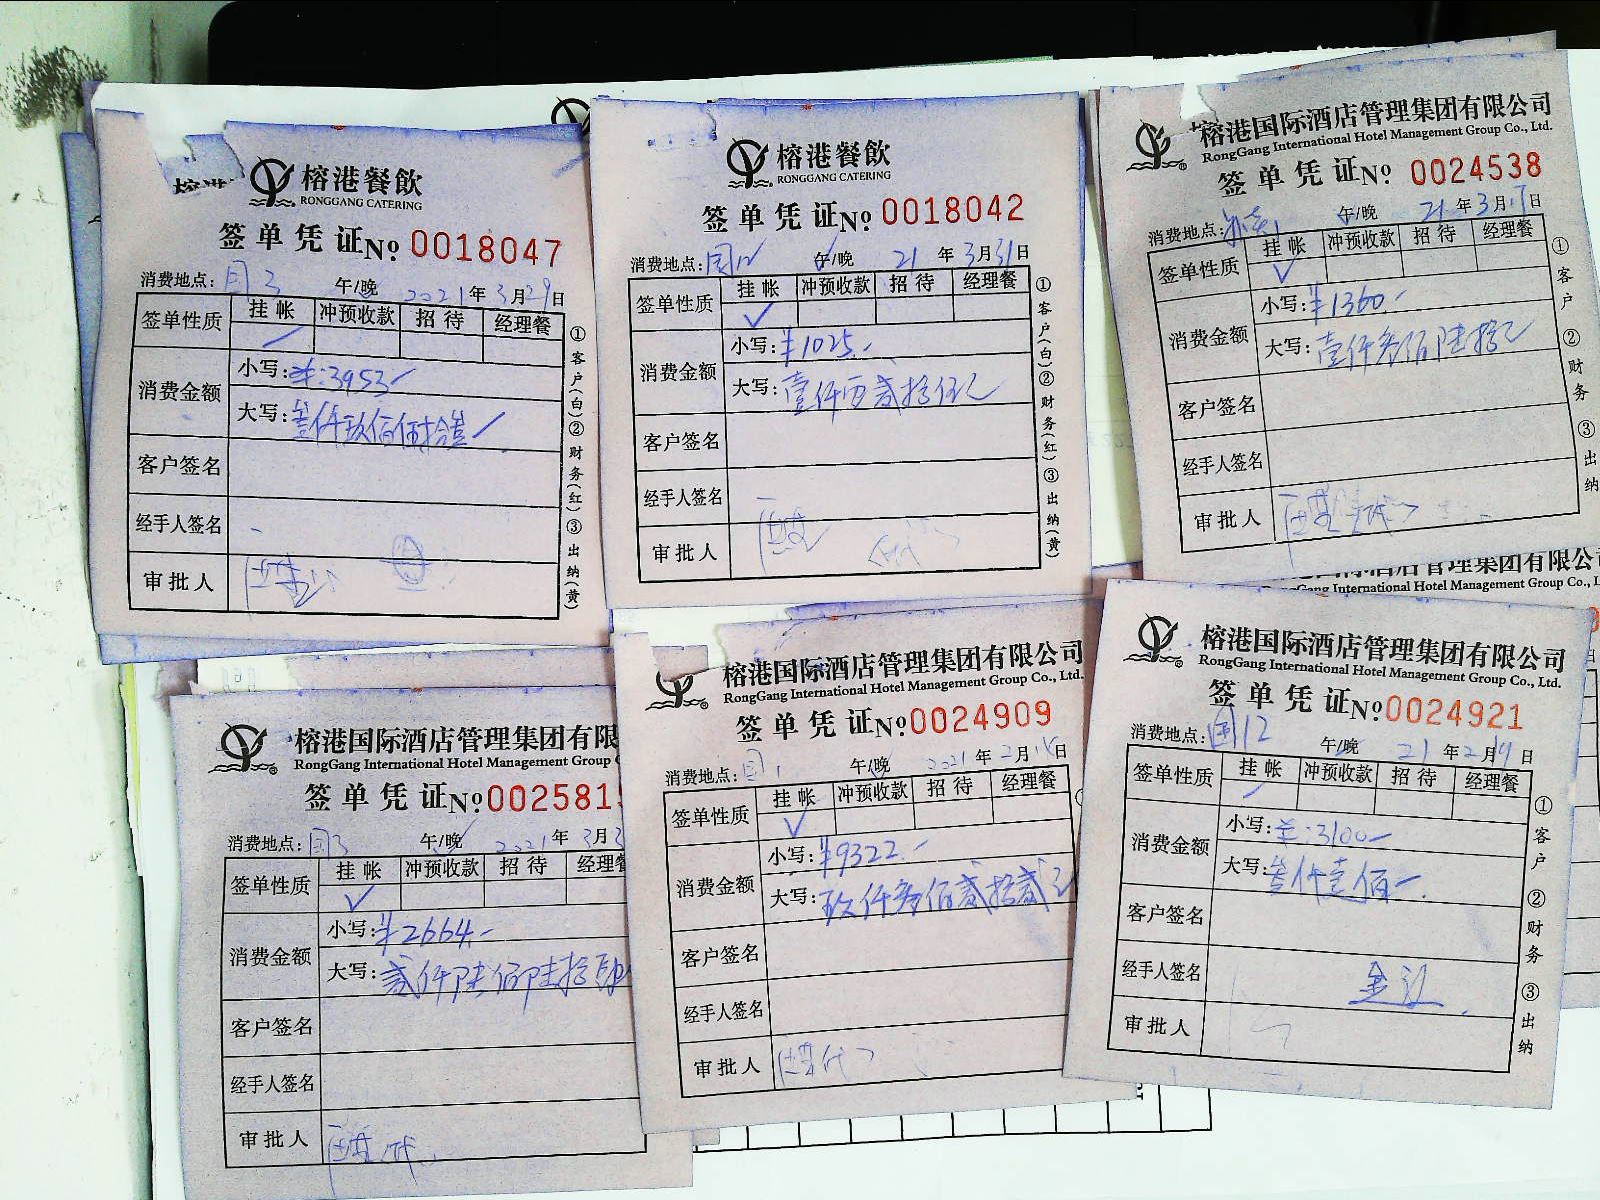 榕港餐飲
RONGGANG CATERING
签单凭证№ 0018047
消费地点：国3 午/晚 2021年3月29日
签单性质 挂帐 冲预收款 招待 经理餐
消费金额
小写：¥:3953
大写：叁仟玖佰伍拾叁
客户签名
经手人签名
审批人
①客户(白)②财务(红)③出纳(黄)
榕港餐飲
RONGGANG CATERING
签单凭证№ 0018042
消费地点：国12 午/晚 21年3月31日
签单性质 挂帐 冲预收款 招待 经理餐
消费金额
小写：¥1025.-
大写：壹仟另贰拾伍元
客户签名
经手人签名
审批人
①客户(白)②财务(红)③出纳(黄)
榕港国际酒店管理集团有限公司
RongGang International Hotel Management Group Co., Ltd.
签单凭证№ 0024538
消费地点： 午/晚 21年3月17日
签单性质 挂帐 冲预收款 招待 经理餐
消费金额
小写：¥1360.-
大写：壹仟叁佰陆拾元
客户签名
经手人签名
审批人
①客户 ②财务 ③出纳
榕港国际酒店管理集团有限
RongGang International Hotel Management Group
签单凭证№ 0025815
消费地点：国3 午/晚 2021年3月3
签单性质 挂帐 冲预收款 招待 经理
消费金额
小写：¥2664.-
大写：贰仟陆佰陆拾肆
客户签名
经手人签名
审批人
榕港国际酒店管理集团有限公司
RongGang International Hotel Management Group Co., Ltd.
签单凭证№ 0024909
消费地点：国1 午/晚 2021年2月 日
签单性质 挂帐 冲预收款 招待 经理餐
消费金额
小写：¥9322.-
大写：玖仟叁佰贰拾贰元
客户签名
经手人签名
审批人
榕港国际酒店管理集团有限公司
RongGang International Hotel Management Group Co., Ltd.
签单凭证№ 0024921
消费地点：国12 午/晚 21年2月19日
签单性质 挂帐 冲预收款 招待 经理餐
消费金额
小写：¥:3100-
大写：叁仟壹佰
客户签名
经手人签名 金江
审批人
①客户 ②财务 ③出纳